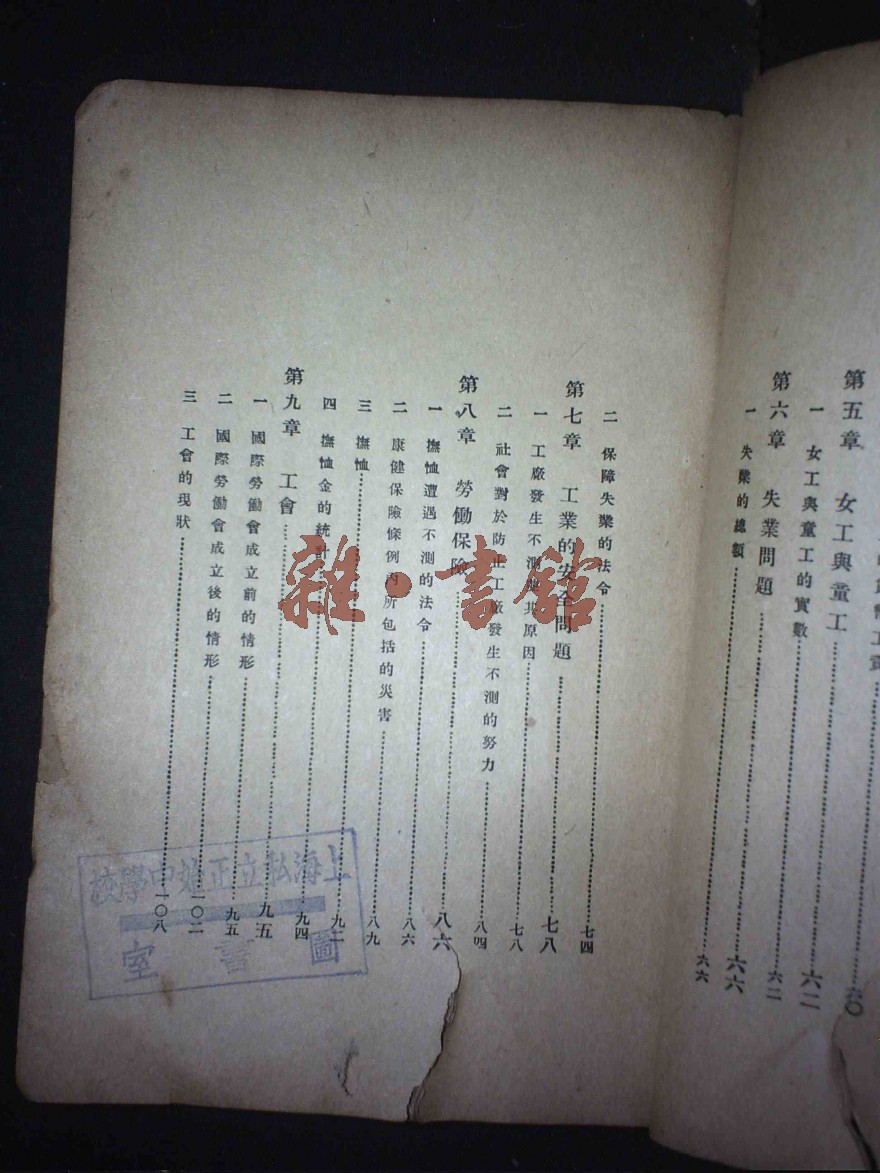 六〇
第五章 女工與童工 六二
一 女工與童工的實數 六二
第六章 失業問題 六六
一 失業的總額 六六
二 保障失業的法令 七四
第七章 工業的安全問題 七八
一 工廠發生不測與其原因 七八
二 社會對於防止工廠發生不測的努力 八四
第八章 勞働保險 八六
一 撫恤遭遇不測的法令 八六
二 康健保險條例內所包括的災害 八九
三 撫恤 九二
四 撫恤金的統計 九四
第九章 工會 九五
一 國際勞働會成立前的情形 九五
二 國際勞働會成立後的情形 一〇二
三 工會的現狀 一〇八
上海私立正始中學校
圖書室
雜·書館